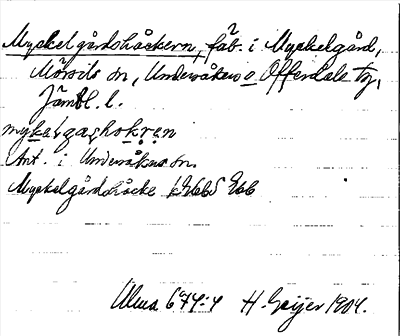 Myckelgårdshåckern, fäb. i Myckelgård,
Mörsils sn, Undersåkers o Offerdals tg,
Jämtl. l.
Ant. i Undersåkers sn.
Myckelgårdshåcke
Ulma 674:4 H. Geijer 1904.